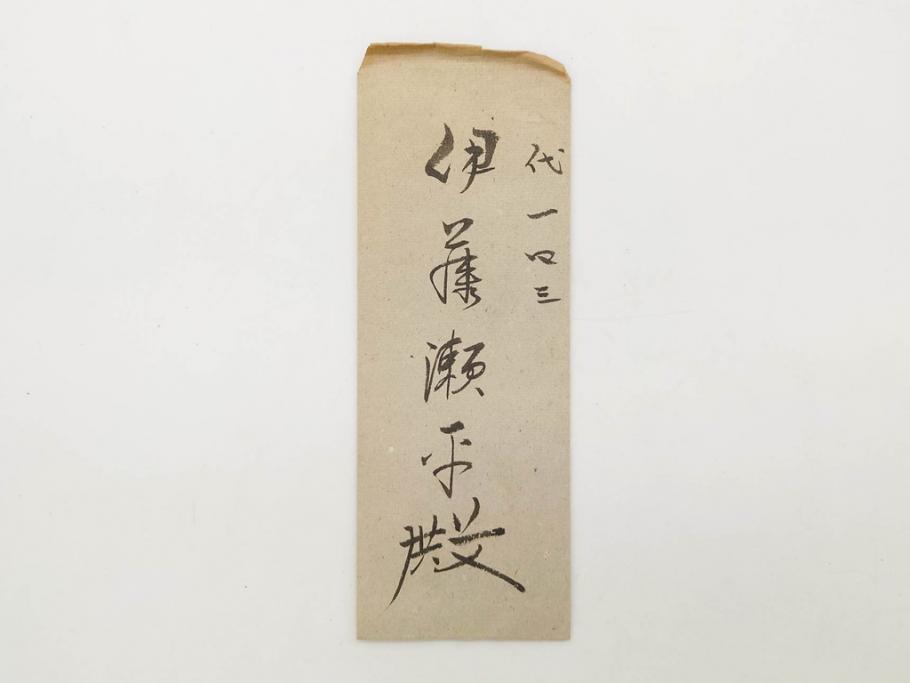 代一四三
伊藤瀬平殿